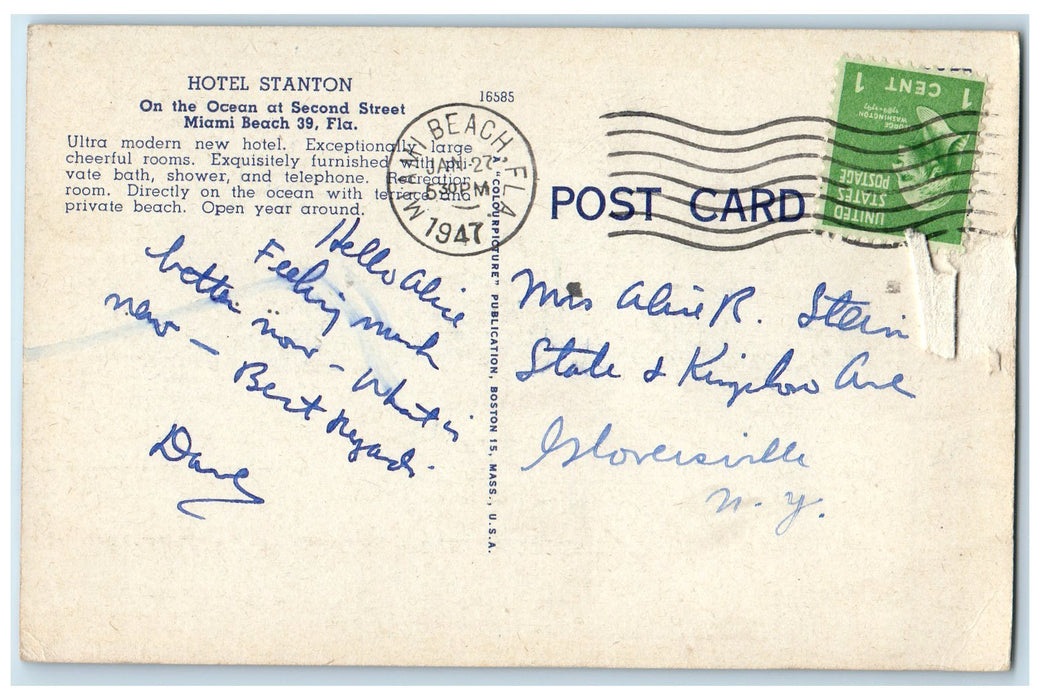 HOTEL STANTON
On the Ocean at Second Street
Miami Beach 39, Fla.
Ultra modern new hotel. Exceptionally large
cheerful rooms. Exquisitely furnished with pri-
vate bath, shower, and telephone. Recreation
room. Directly on the ocean with terrace and
private beach. Open year around.
16585
MIAMI BEACH, FLA
JAN 27
5 30 PM
1947
POST CARD
1 CENT 1
GEORGE WASHINGTON
1789-1797
UNITED
STATES
POSTAGE
A "COLOURPICTURE" PUBLICATION, BOSTON 15, MASS., U.S.A.
Hello Alice
Feeling much
better now - What is
new - Best Regards.
Dave
Mrs Alice R. Stein
State & Kingsboro Ave
Gloversville
N. Y.